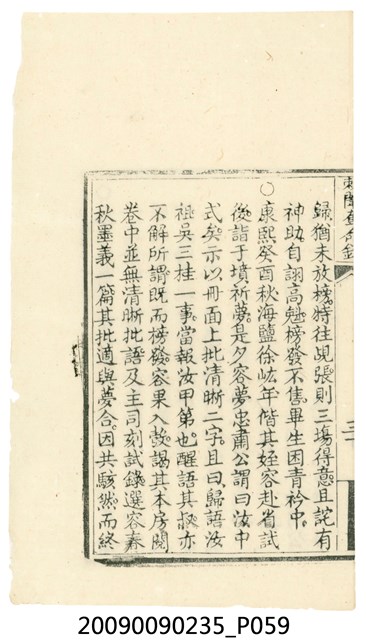 歸猶未放榜特往覘張則三塲得意且詫有
神助自詡高魁榜發不售畢生困青衿中
○康熙癸酉秋海鹽徐紘年偕其姪容赴省試
後詣于墳祈夢是夕容夢忠肅公謂曰汝中
式矣示以冊面上批清晰二字且曰歸語汝
祖吳三桂一事當報汝甲第也醒語其叔亦
不解所謂既而榜發容果入彀謁其本房閱
卷中並無清晰批語及主司刻試錄選容春
秋墨義一篇其批適與夢合因共駭然而終
20090090235_P059